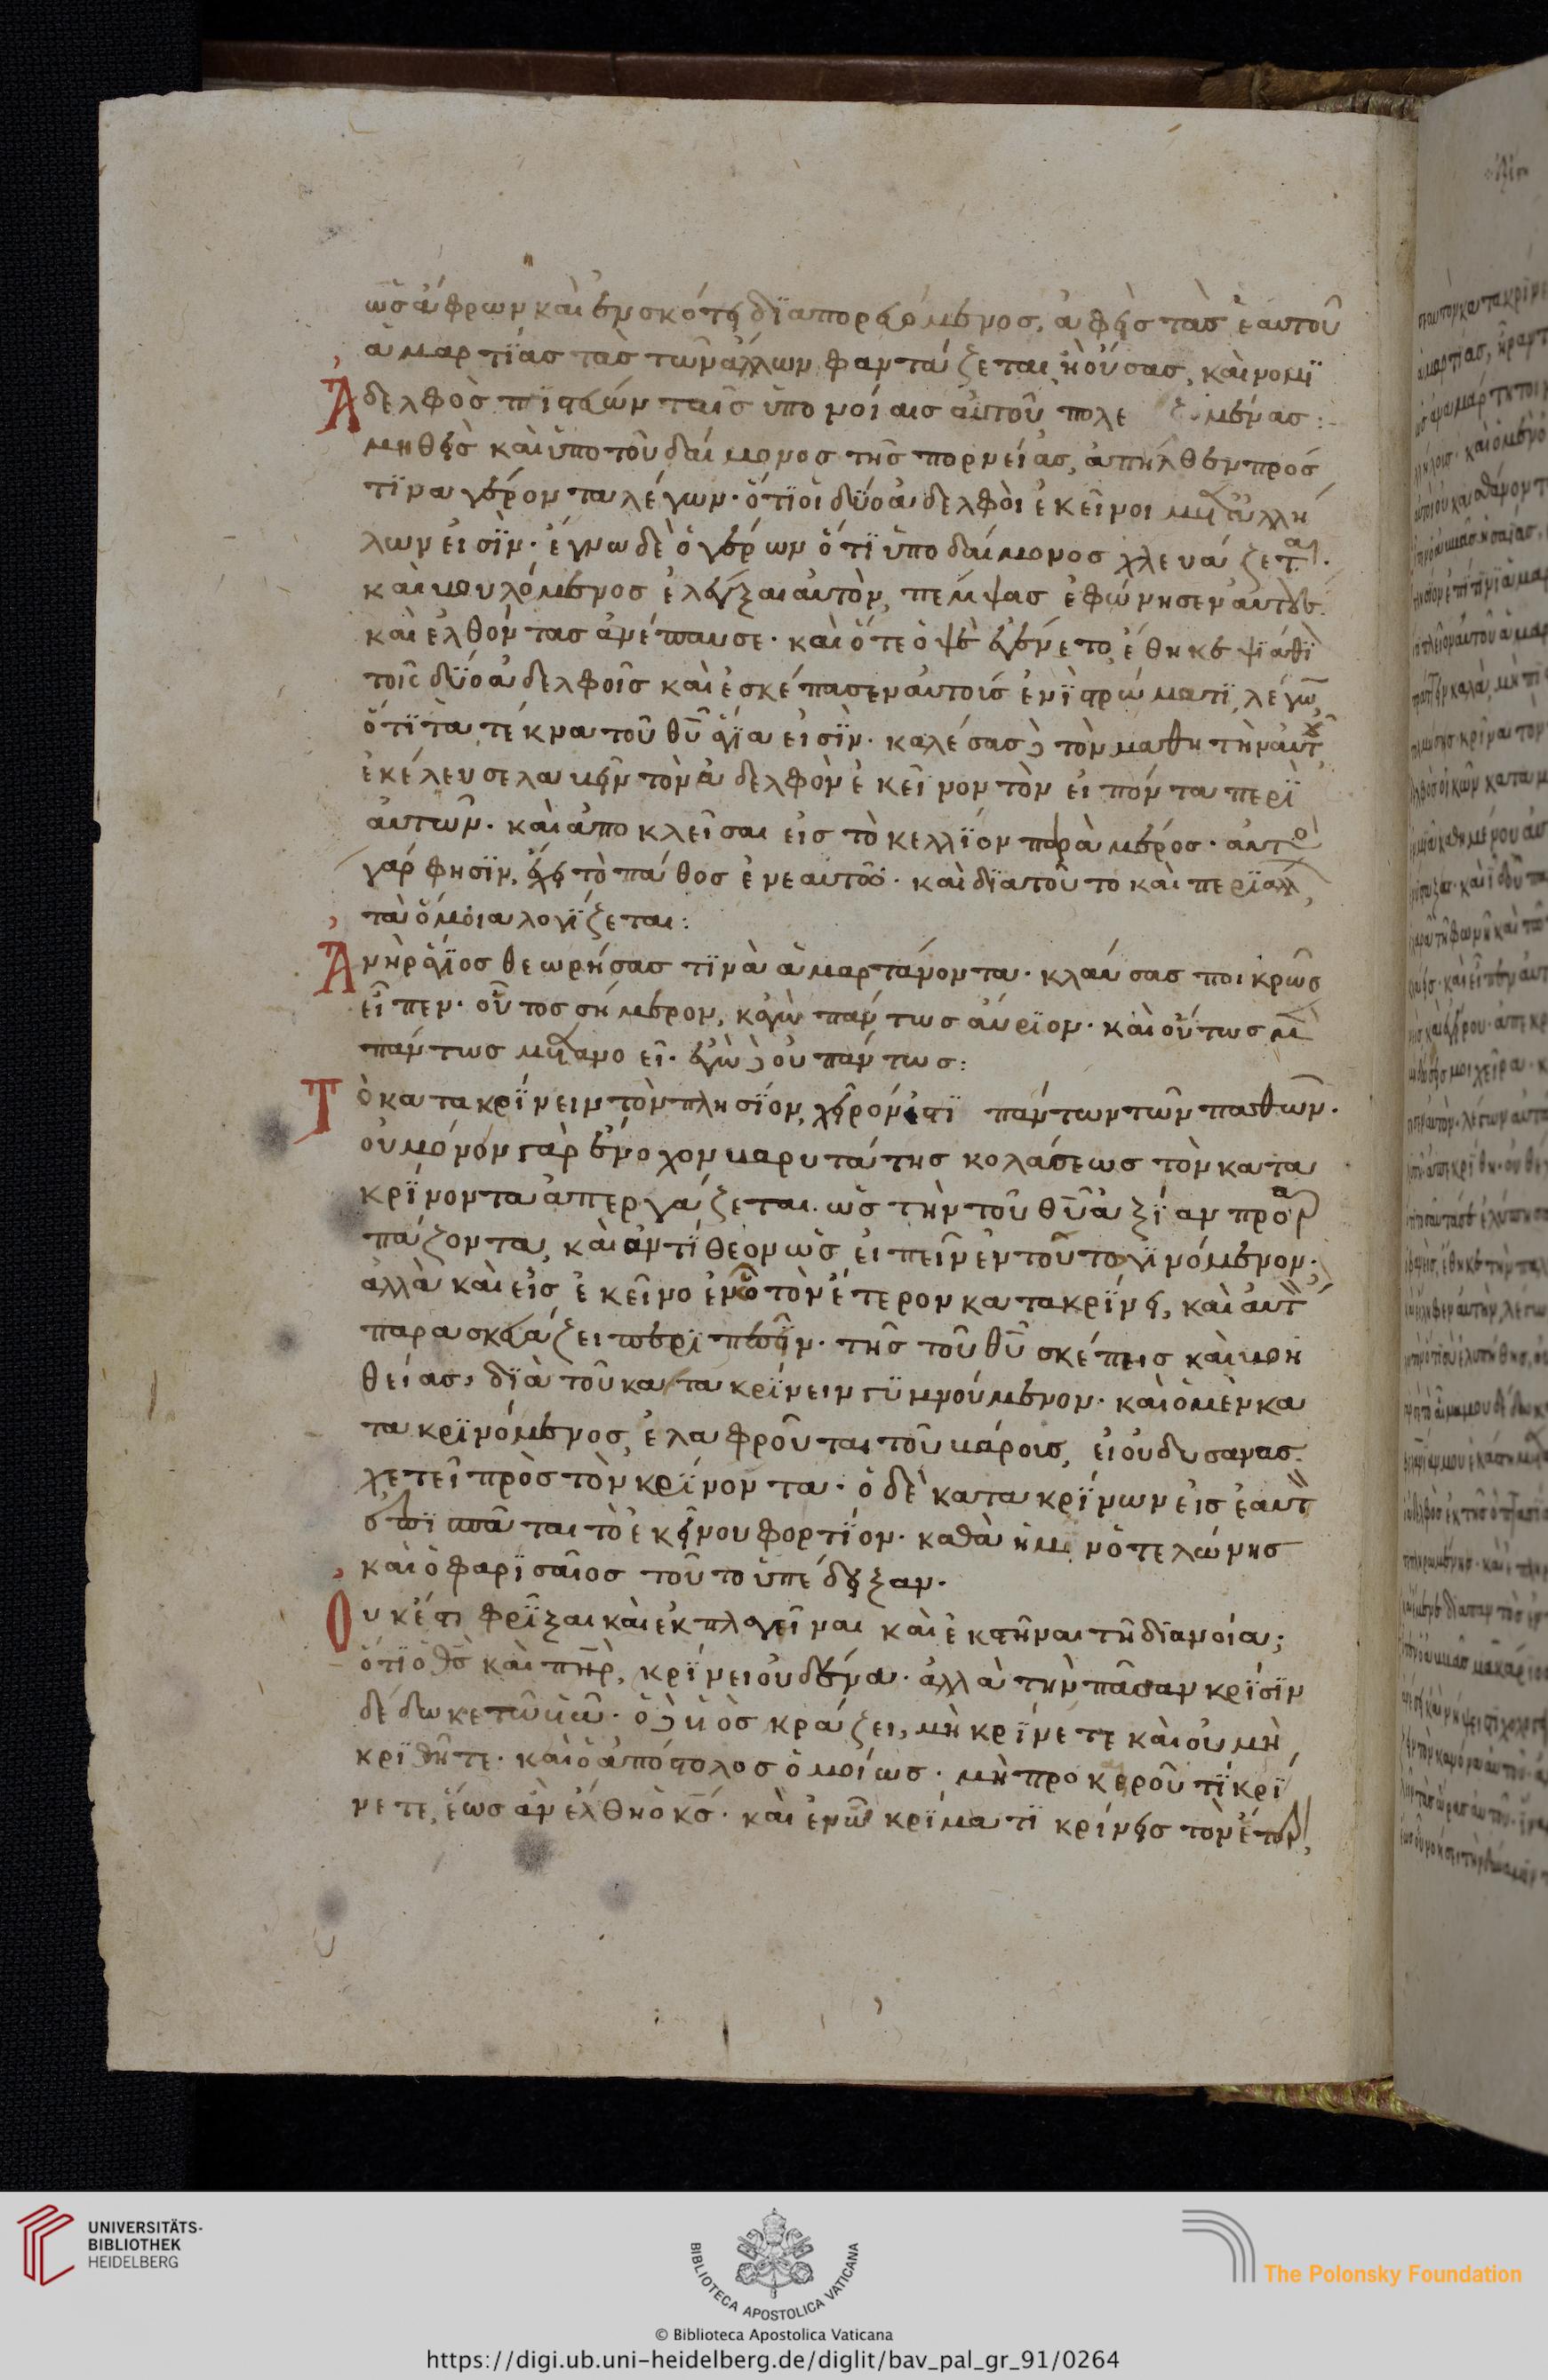 ὡς ἄφρων καὶ ἐν σκότει διαπορευόμενος, ἀφεὶς τὰς ἑαυτοῦ
ἁμαρτίας τὰς τῶν ἄλλων φαντάζεται ἢ οὔσας, καὶ νομι
Ἀδελφὸς πιστεύων ταῖς ὑπονοίαις αὐτοῦ πολε ζομένας:
μηθεὶς καὶ ὑπο τοῦ δαίμονος τῆς πορνείας, ἀπῆλθεν πρός
τινα γέροντα λέγων· ὅτι οἱ δύο ἀδελφοὶ ἐκεῖνοι μετ ἀλλή
λων εἰσίν· ἔγνω δὲ ὁ γέρων ὅτι ὑπο δαίμονος χλευάζεται·
καὶ βουλόμενος ἐλέγξαι αὐτὸν, πέμψας ἐφώνησεν αὐτούς·
καὶ ἐλθόντας ἀνέπαυσε· καὶ ὅτε ὀψὲ ἐγένετο, ἔθηκε ψιάθι
τοῖς δύο ἀδελφοῖς καὶ ἐσκέπασεν αὐτοὺς ἑνὶ στρώματι, λέγων
ὅτι τὰ τέκνα τοῦ θυ ἅγια εἰσίν· καλέσας δὲ τὸν μαθητὴν αὐτοῦ
ἐκέλευσε λαβεῖν τὸν ἀδελφὸν ἐκεῖνον τὸν εἰπόντα περὶ
αὐτῶν· καὶ ἀποκλεῖσαι εἰς τὸ κελλίον παρὰ μέρος· αὐτὸ
γάρ φησίν, ἔχει τὸ πάθος ἐν ἑαυτῶ· καὶ διατοῦτο καὶ περὶ ἄλλ
τὰ ὅμοια λογίζεται:
Ἀνὴρ ἅγιος θεωρήσας τινὰ ἁμαρτάνοντα· κλαύσας πικρῶς
εἶπεν· οὗτος σήμερον, κἀγὼ πάντως αὔριον· καὶ οὗτος μὲν
πάντως μετανοεῖ· ἐγὼ δὲ οὐ πάντως:
Τὸ κατακρίνειν τὸν πλησίον, χεῖρόν ἐστι πάντων τῶν παθῶν·
οὐ μόνον γὰρ ἔνοχον βαρυτάτης κολάσεως τὸν κατα
κρίνοντα ἀπεργάζεται· ὡς τὴν τοῦ θυ ἀξίαν προαρ
πάζοντα, καὶ ἀντίθεον ὡς εἰπεῖν ἐν τοῦτο γινόμενον·
ἀλλὰ καὶ εἰς ἐκεῖνο ἐν ὧ τὸν ἕτερον κατακρίνει, καὶ αὐτὸν
παρασκευάζει περιπεσεῖν· τῆς τοῦ θυ σκέπης καὶ βοη
θείας, διὰ τοῦ κατακρίνειν γυμνούμενον· καὶ ὁ μὲν κα
τακρινόμενος, ἐλαφροῦται τοῦ βάρους, εἰ οὐ δυσανας
χετεῖ πρὸς τὸν κρίνοντα· ὁ δὲ κατακρίνων εἰς ἑαυτὸν
ἐπισπᾶται τὸ ἐκείνου φορτίον· καθὰ ἡμῖν ὁ τελώνης
καὶ ὁ φαρισαῖος τοῦτο ὑπέδειξαν·
Οὐκ ἔστι φρῖξαι καὶ ἐκπλαγεῖναι καὶ ἐκστῆναι τῆ διανοία;
ὅτι ὁ θς καὶ πηρ, κρίνει οὐδένα· ἀλλὰ τὴν πᾶσαν κρίσιν
δέδωκε τῶ υἱῶ· ὁ δὲ υἱὸς κράζει, μὴ κρίνετε καὶ οὐ μὴ
κριθῆτε· καὶ ὁ ἀπόστολος ὁμοίως· μὴ προ καιροῦ τι κρί
νετε, ἕως ἂν ἔλθη ὁ κς· καὶ ἐν ὧ κρίματι κρίνεις τὸν ἕτερον,
UNIVERSITÄTS-
BIBLIOTHEK
HEIDELBERG
BIBLIOTECA APOSTOLICA VATICANA
The Polonsky Foundation
© Biblioteca Apostolica Vaticana
https://digi.ub.uni-heidelberg.de/diglit/bav_pal_gr_91/0264